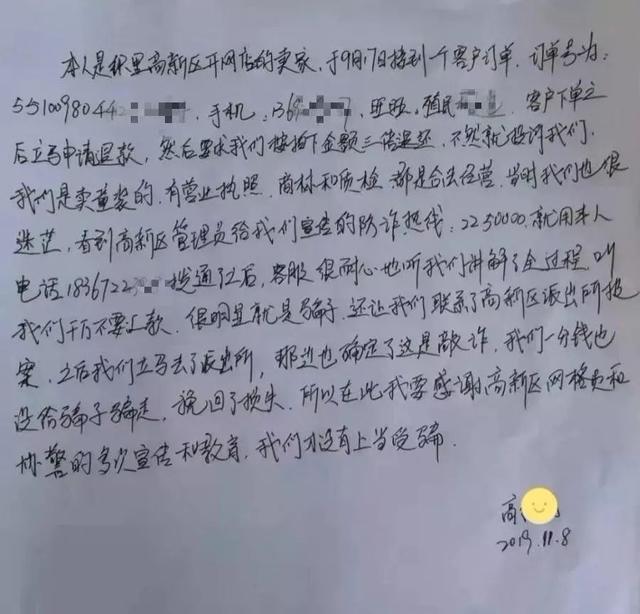 本人是织里高新区开网店的卖家,于9月17日接到一个客户订单,订单号为:
5510098044 手机:1368 7, 旺旺, 殖民 客户下单之
后立马申请退款,然后要求我们按拍下金额三倍退还,不然就投诉我们.
我们是卖童装的,有营业执照,商标和质检都是合法经营,当时我们也很
迷茫,看到高新区管理员给我们宣传的防诈热线:2250000.就用本人
电话1836722 拨通过后,客服很耐心地听我们讲解了全过程,叫
我们千万不要上款,很明显就是骗子,还让我们联系了高新区派出所报
案,之后我们立马去了派出所,那边也确定了这是敲诈,我们一分钱也
没给骗子骗走,挽回了损失.所以在此我要感谢高新区网格员和
协警的多次宣传和教育,我们才没有上当受骗.
高
2019.11.8